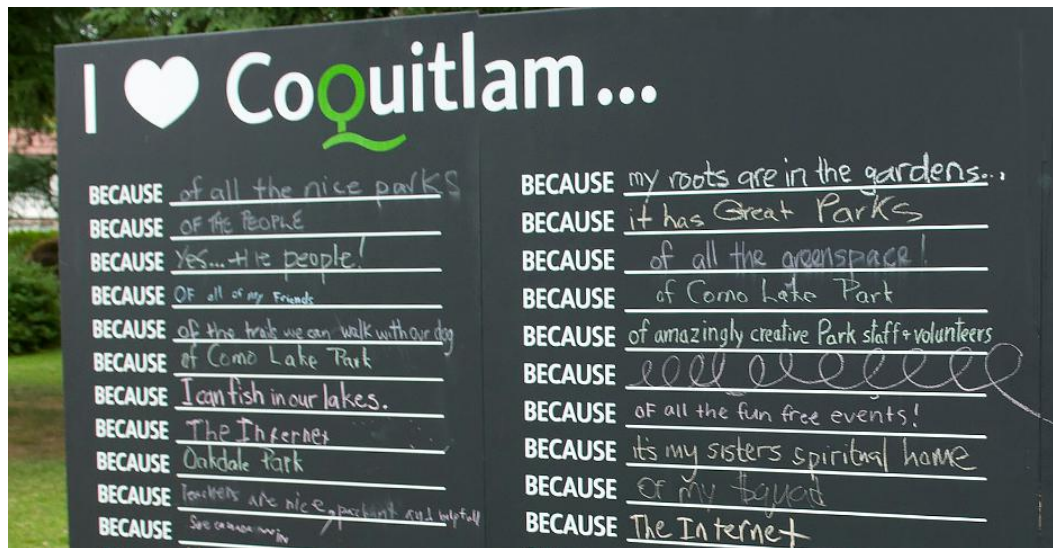 I ♥ Coquitlam...
BECAUSE of all the nice parks
BECAUSE OF THE PEOPLE
BECAUSE Yes... the people!
BECAUSE OF all of my Friends
BECAUSE of the trails we can walk with our dog
BECAUSE of Como Lake Park
BECAUSE I can fish in our lakes.
BECAUSE The Internet
BECAUSE Oakdale Park
BECAUSE Teachers are nice, and helpfull
BECAUSE
BECAUSE my roots are in the gardens...
BECAUSE it has Great Parks
BECAUSE of all the greenspace!
BECAUSE of Como Lake Park
BECAUSE of amazingly creative Park staff + volunteers
BECAUSE
BECAUSE OF all the fun free events!
BECAUSE it's my sisters spiritual home
BECAUSE Of my squad
BECAUSE The Internet